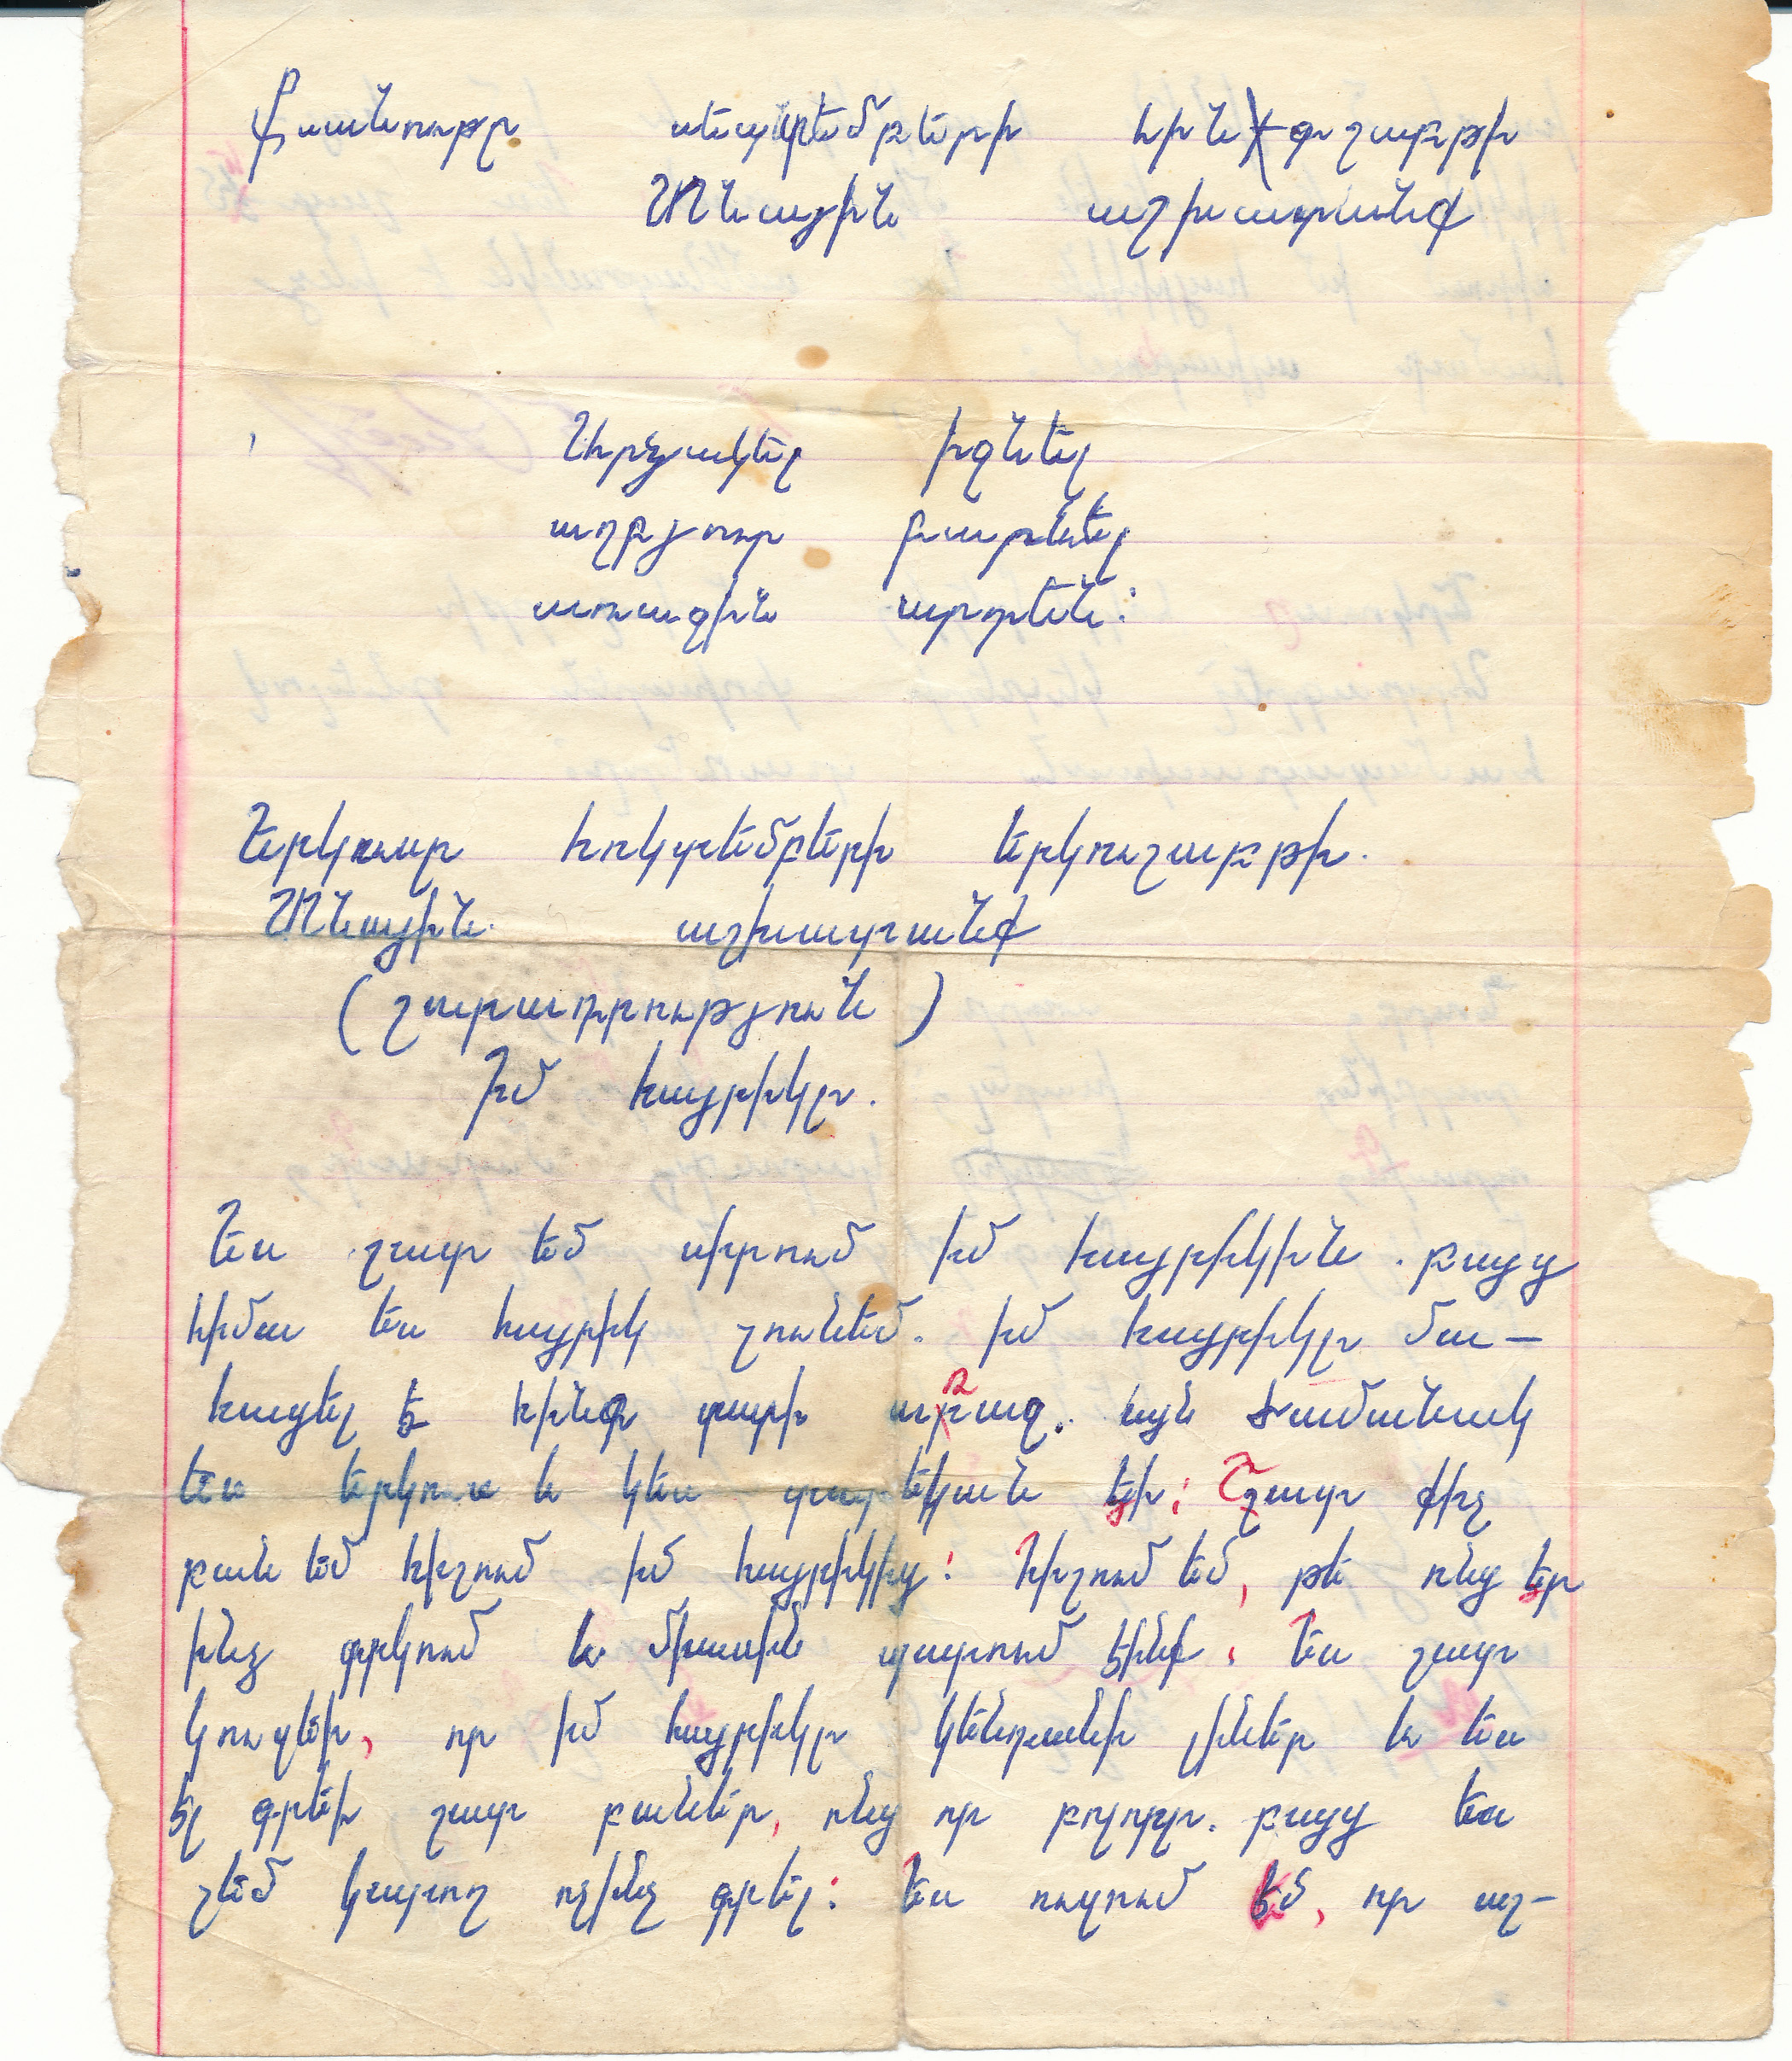 Քսանութը սեպտեմբերի հինգշաբթի
Տնային աշխատանք
Ներջակել իջնել
աղբյուր բարձել
առաջին արդեն:
Երկուսը հոկտեմբերի երկուշաբթի.
Տնային աշխատանք
(շարադրություն)
Իմ հայրիկը.
Ես շատ եմ սիրում իմ հայրիկին. բայց
հիմա ես հայրիկ չունեմ. իմ հայրիկը մա-
հացել է հինգ տարի առաջ. այն ժամանակ
ես երկու և կես տարեկան էի: Շատ քիչ
բան եմ հիշում իմ հայրիկից: Հիշում եմ, թե ոնց էր
ինձ գրկում և միասին պարում էինք: Ես շատ
կուզեի, որ իմ հայրիկը կենդանի լիներ և ես
էլ գրեի շատ բաներ, ոնց որ բոլորը. բայց ես
չեմ կարող ոչինչ գրել: Ես ուզում եմ, որ աշ-